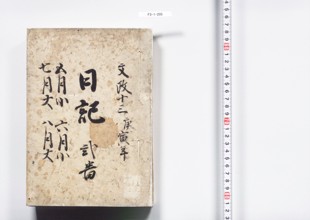 文政十三庚寅年
日記 弐番
五月小 六月小
七月大 八月大